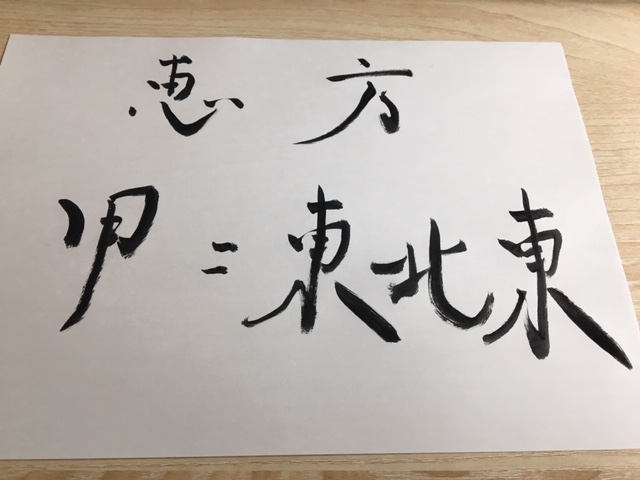 恵方
甲＝東北東